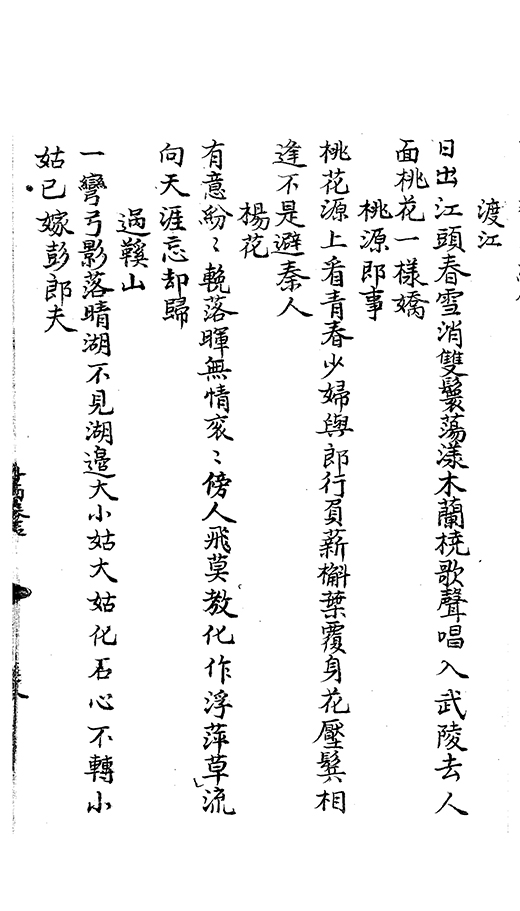 渡江
日出江頭春雪消雙鬟蕩漾木蘭橈歌聲唱入武陵去人
面桃花一樣嬌
桃源即事
桃花源上看青春少婦與郎行負薪槲葉覆身花壓鬓相
逢不是避秦人
楊花
有意紛〻輓落暉無情衮〻傍人飛莫教化作浮萍草流
向天涯忘却歸
過鞵山
一彎弓影落晴湖不見湖邉大小姑大姑化石心不轉小
姑已嫁彭郎夫